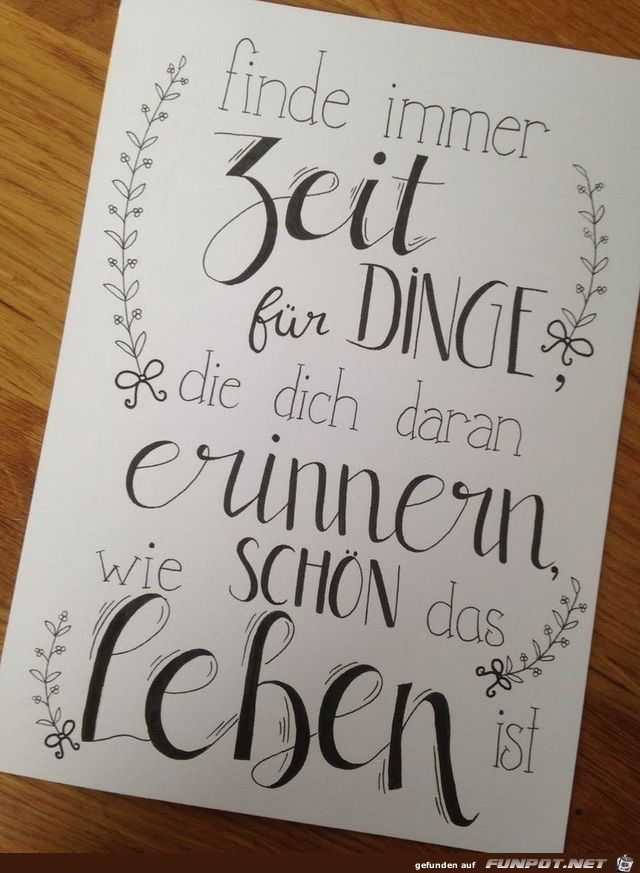 finde immer
Zeit
für DINGE,
die dich daran
erinnern,
wie SCHÖN das
Leben ist
gefunden auf FUNPOT.NET